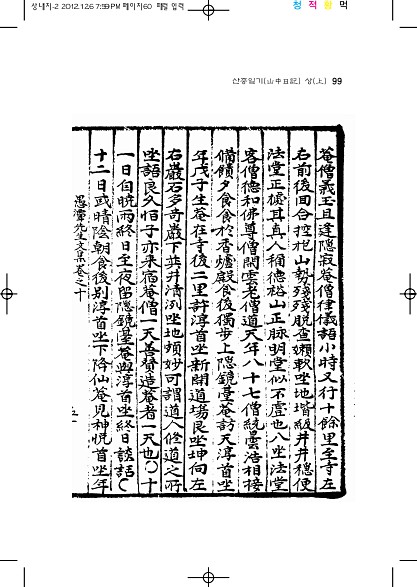 상내지-2 2012.12.6 7:59 PM 페이지60 패럴 입력
청 적 황 먹
산중일기(山中日記) 상(上) 99
菴僧義玉且逢隱寂菴僧律儀語小時又行十餘里至寺左
右前後回合控抱山勢殘殘脫査嫩軟坐地堦級井井穩便
法堂正據耳真人稱德裕山正脉明堂似不虛也八坐法堂
客僧德和佛尊僧闕雲老僧道天年八十七僧統雲浩相接
備饋夕食食於香爐殿食後獨步上隱鏡臺菴訪天淳首坐
年戊子生菴在寺後二里許淳首坐新開道場艮坐坤向左
右巖石多奇巖下並井淸冽坐地頗妙可謂道人修道之所
坐語良久怕子亦來宿菴僧一天善賛造菴者一天也〇十
一日自晩雨終日至夜留隱鏡臺菴與淳首坐終日談話〇
十二日或晴陰朝食後別淳首坐下降仙菴見神悅首坐年
愚潭先生文集卷之十